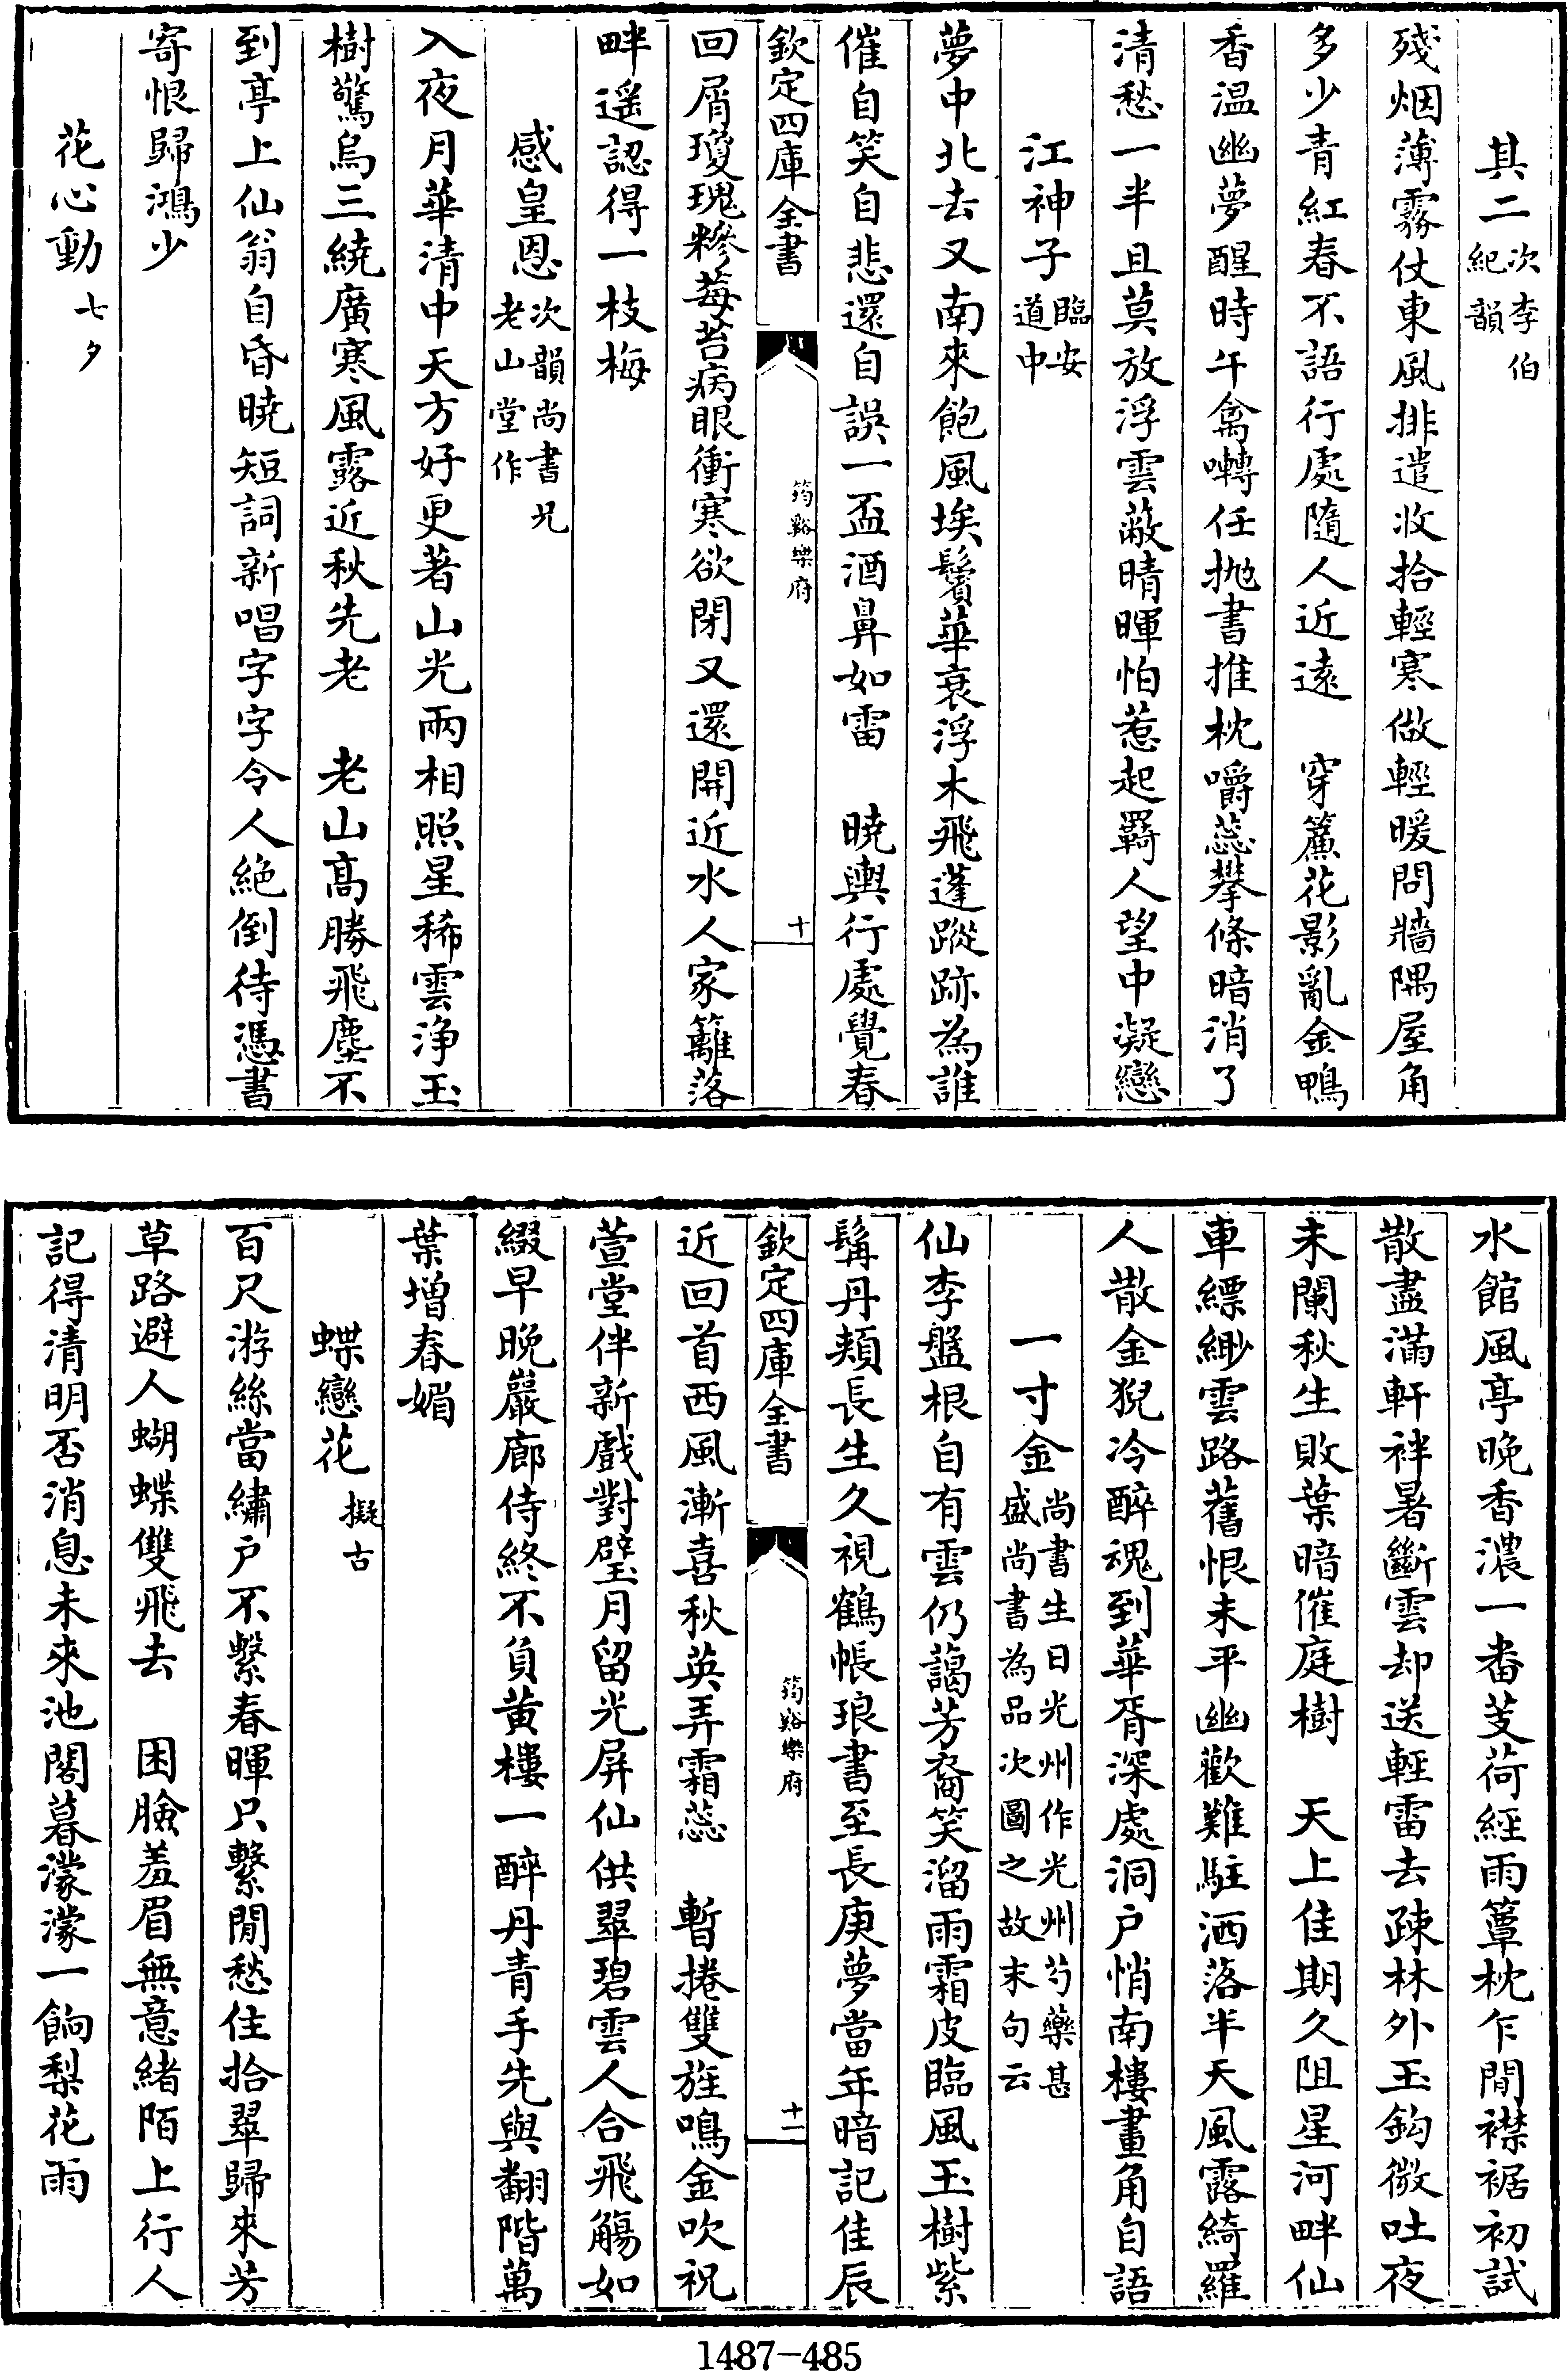 其二次李伯紀韻
殘烟薄霧仗東風排遣收拾輕寒做輕暖問牆隅屋角
多少青紅春不語行處隨人近遠　穿簾花影亂金鴨
香温幽夢醒時午禽囀任抛書推枕嚼蕊攀條暗消了
清愁一半且莫放浮雲蔽晴暉怕惹起羇人望中凝戀
江神子臨安道中
夢中北去又南來飽風埃鬢華衰浮木飛蓬蹤跡為誰
催自笑自悲還自誤一盃酒鼻如雷　曉輿行處覺春
欽定四庫全書
筠谿樂府
十
回屑瓊瑰糝莓苔病眼衝寒欲閉又還開近水人家籬落
畔遥認得一枝梅
感皇恩次韻尚書兄老山堂作
入夜月華清中天方好更著山光兩相照星稀雲浄玉
樹驚烏三繞廣寒風露近秋先老　老山高勝飛塵不
到亭上仙翁自昏曉短詞新唱字字令人絶倒待憑書
寄恨歸鴻少
花心動七夕
水館風亭晚香濃一番芰荷經雨簟枕乍閒襟裾初試
散盡滿軒袢暑斷雲却送輕雷去疎林外玉鈎微吐夜
未闌秋生敗葉暗催庭樹　天上佳期久阻星河畔仙
車縹緲雲路舊恨未平幽歡難駐洒落半天風露綺羅
人散金猊冷醉魂到華胥深處洞户悄南樓畫角自語
一寸金尚書生日光州作光州芍藥甚盛尚書為品次圖之故末句云
仙李盤根自有雲仍藹芳裔笑溜雨霜皮臨風玉樹紫
髯丹頰長生久視鶴帳琅書至長庚夢當年暗記佳辰
欽定四庫全書
筠谿樂府
十一
近回首西風漸喜秋英弄霜蕊　暫捲雙旌鳴金吹祝
萱堂伴新戲對璧月留光屏仙供翠碧雲人合飛觴如
綴早晚巖廊侍終不負黄樓一醉丹青手先與翻階萬
葉增春媚
蝶戀花擬古
百尺游絲當繡户不繫春暉只繫閒愁住拾翠歸來芳
草路避人蝴蝶雙飛去　困臉羞眉無意緒陌上行人
記得清明否消息未來池閣暮濛濛一餉梨花雨
1487-485